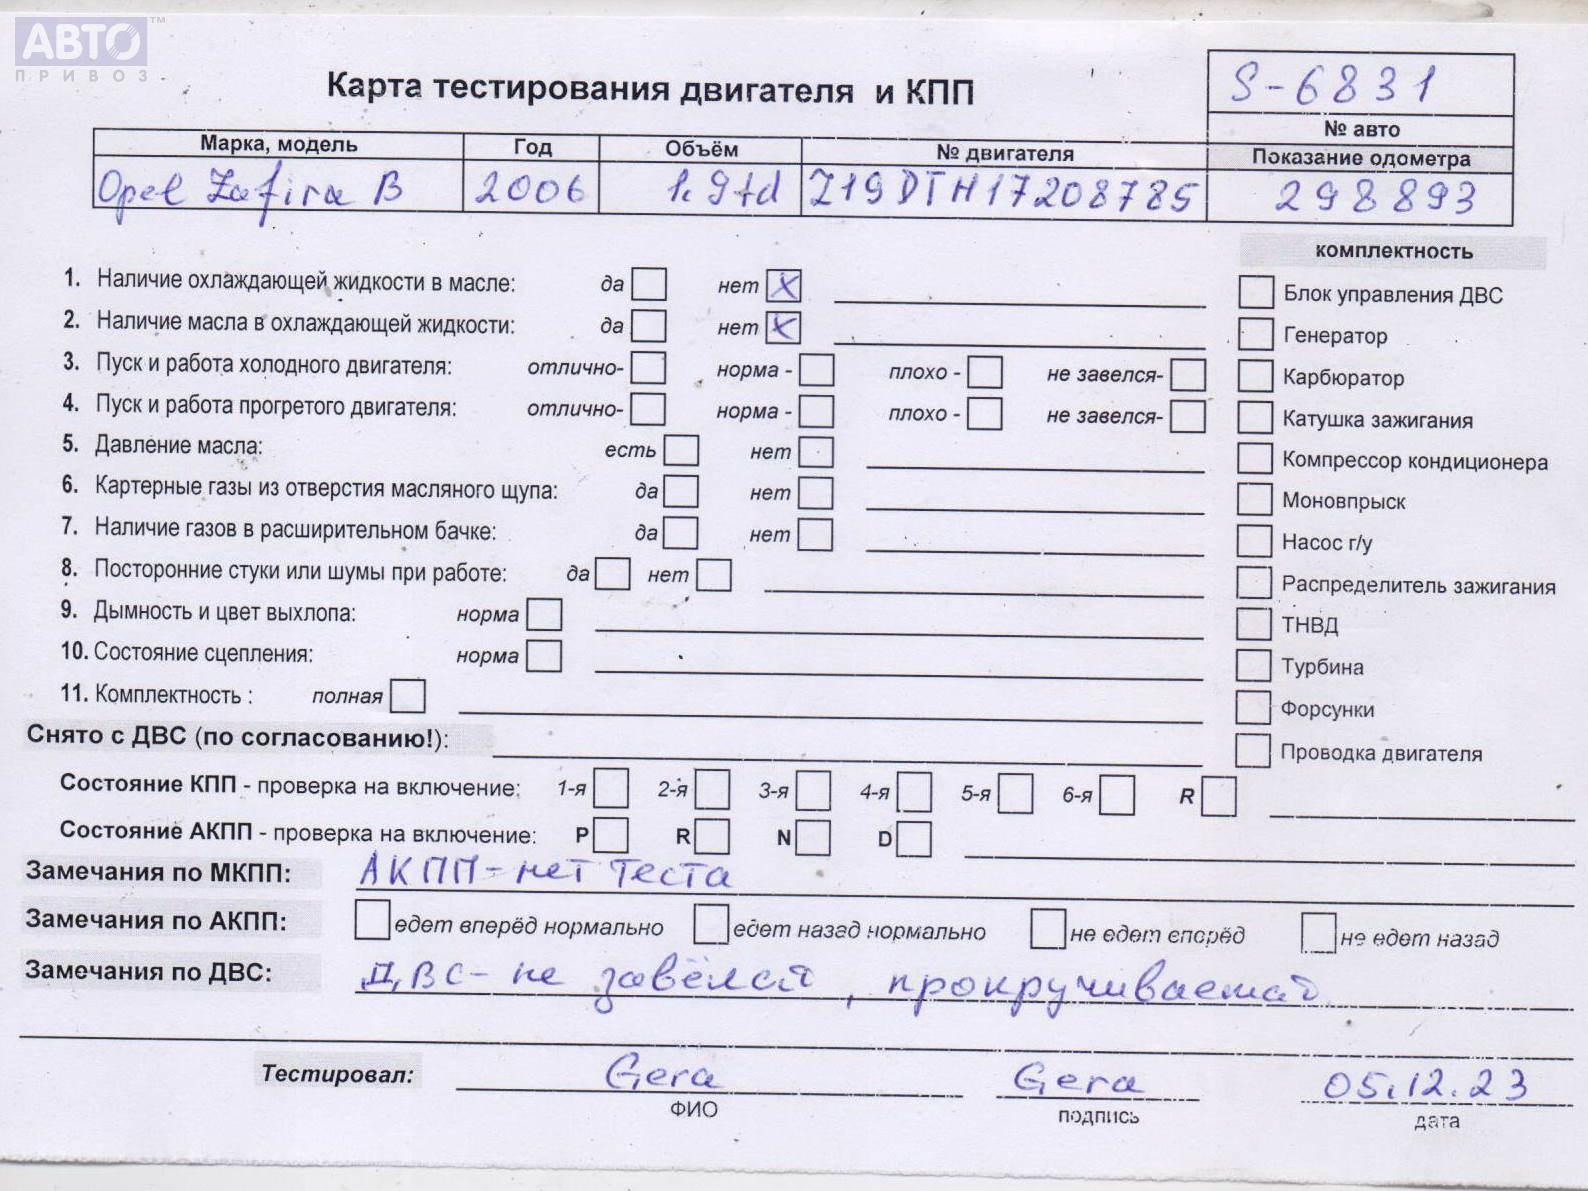 АВТО™
ПРИВОЗ
Карта тестирования двигателя и КПП
S-6831
№ авто
Марка, модель Год Объём № двигателя Показание одометра
Opel Zafira B 2006 1.9td Z19DTH17208785 298893
комплектность
1. Наличие охлаждающей жидкости в масле: да нет X
Блок управления ДВС
2. Наличие масла в охлаждающей жидкости: да нет X
Генератор
3. Пуск и работа холодного двигателя: отлично- норма - плохо - не завелся-
Карбюратор
4. Пуск и работа прогретого двигателя: отлично- норма - плохо - не завелся-
Катушка зажигания
5. Давление масла: есть нет
Компрессор кондиционера
6. Картерные газы из отверстия масляного щупа: да нет
Моновпрыск
7. Наличие газов в расширительном бачке: да нет
Насос г/у
8. Посторонние стуки или шумы при работе: да нет
Распределитель зажигания
9. Дымность и цвет выхлопа: норма
ТНВД
10. Состояние сцепления: норма
Турбина
11. Комплектность : полная
Форсунки
Снято с ДВС (по согласованию!):
Проводка двигателя
Состояние КПП - проверка на включение: 1-я 2-я 3-я 4-я 5-я 6-я R
Состояние АКПП - проверка на включение: P R N D
Замечания по МКПП: АКПП-нет теста
Замечания по АКПП: едет вперёд нормально едет назад нормально не едет вперёд не едет назад
Замечания по ДВС: ДВС- не завёлся, прокручивается
Тестировал: Gera Gera 05.12.23
ФИО подпись дата